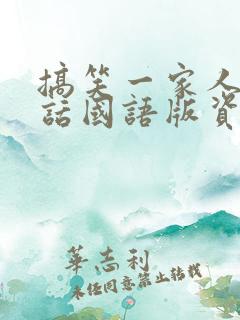 搞笑一家人
話國語版資
華志利
未经同意禁止转载